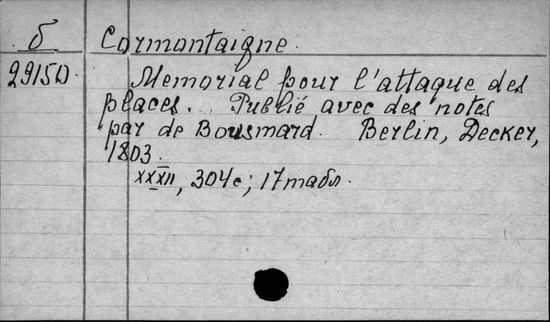 б Cormontaigne.
29150. Memorial pour l'attaque des
places... Publié avec des notes
par de Bousmard. Berlin, Decker,
1803.
XXXII, 304 с; 17 табл.